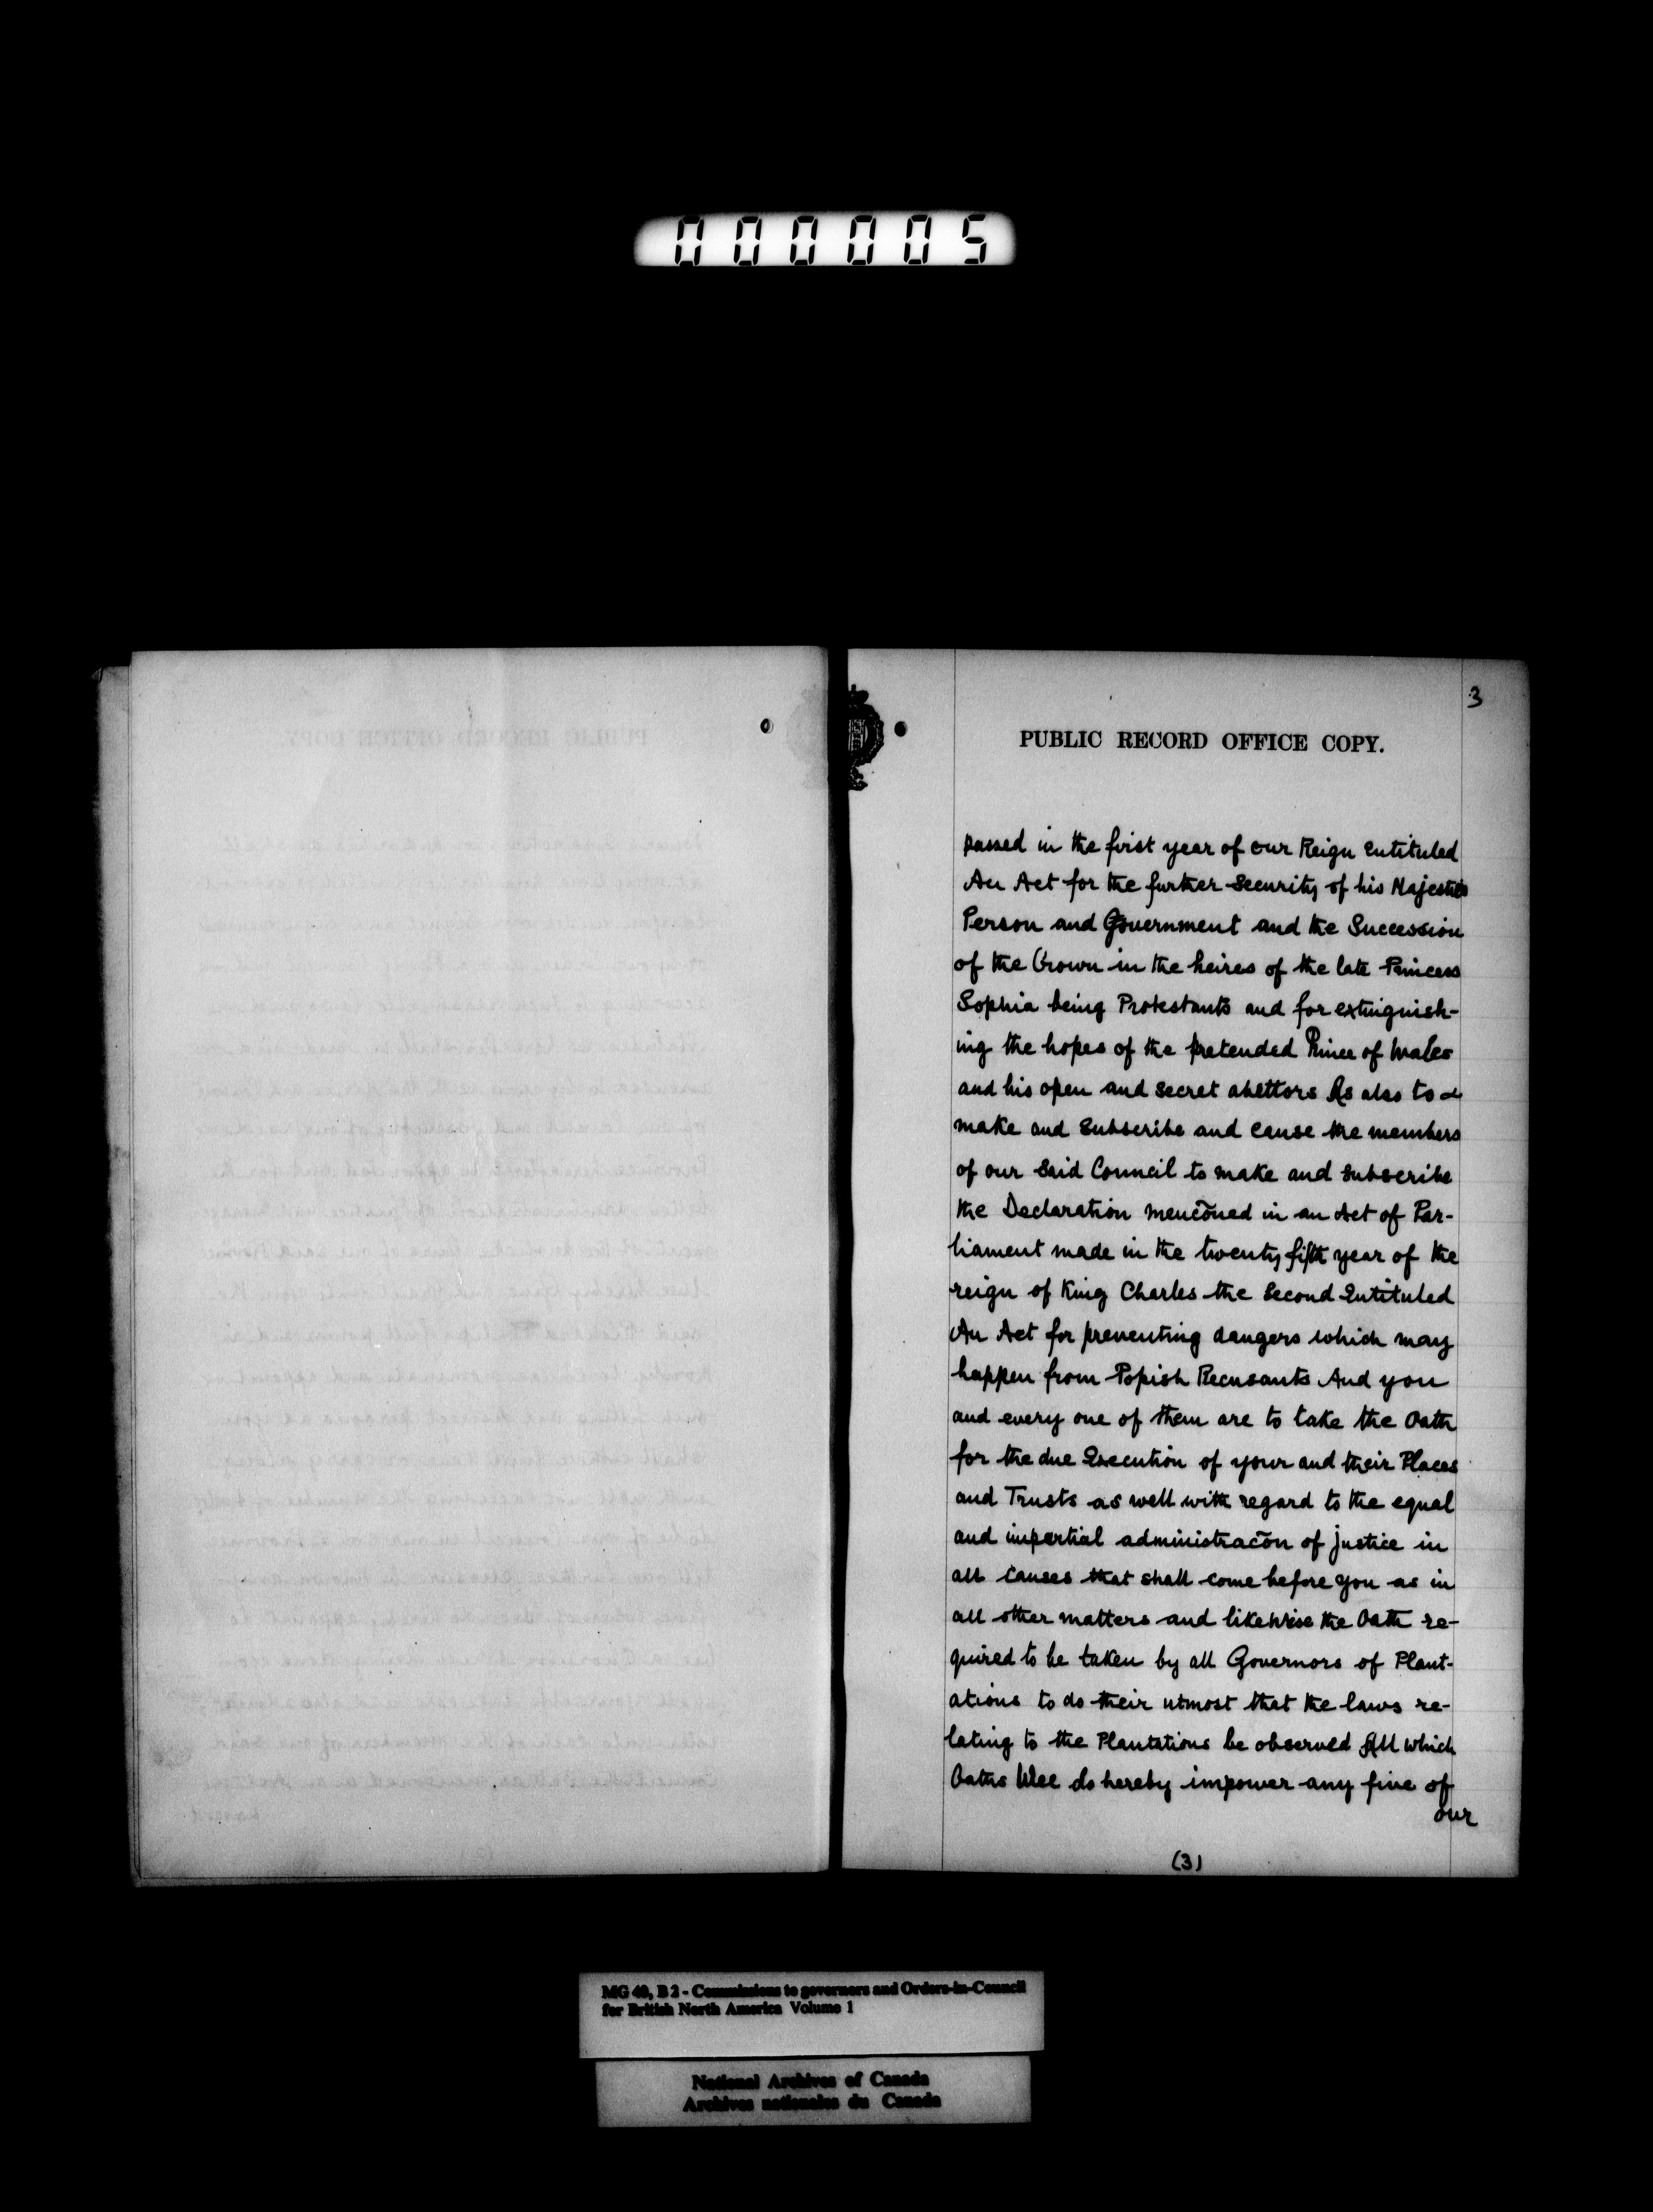 000005
3
PUBLIC RECORD OFFICE COPY.
passed in the first year of our Reign entituled
An Act for the further Security of his Majesties
Person and Government and the Succession
of the Crown in the heires of the late Princess
Sophia being Protestants and for extinguish-
ing the hopes of the pretended Prince of Wales
and his open and secret abettors As also to
make and Subscribe and cause the members
of our Said Council to make and subscribe
the Declaration mencõned in an Act of Par-
liament made in the twenty fifth year of the
reign of King Charles the Second Entituled
An Act for preventing dangers which may
happen from Popish Recusants And you
and every one of them are to take the Oath
for the due Execution of your and their Places
and Trusts as well with regard to the equal
and impartial administracõn of justice in
all causes that shall come before you as in
all other matters and likewise the Oath re-
quired to be taken by all Governors of Plant-
ations to do their utmost that the laws re-
lating to the Plantations be observed All which
Oaths Wee do hereby impower any five of
our
(3)
MG 40, B 2 - Commissions to governors and Orders-in-Council
for British North America Volume 1
National Archives of Canada
Archives nationales du Canada